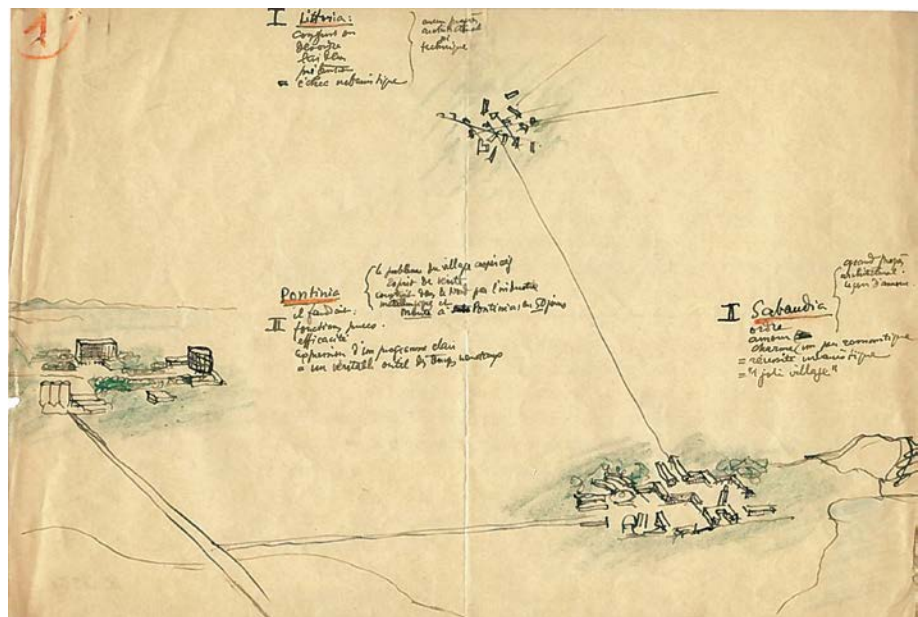 1
I Littoria:
confusion
désordre
= échec urbanistique
aucun progrès
architectural
et
technique
Pontinia
il faudrait:
III
fonction pures.
efficacité
expression d'un programme clair
= un véritable outil des temps nouveaux
le problème du village coopératif
esprit de vérité
construit dans le Nord par l'industrie
métallurgique et
monté à Pontinia en 50 jours
II Sabaudia
ordre
amour
charme (un peu romantique
= réussite urbanistique
= "1 joli village"
grand progrès
architectural.
leçon d'amour.